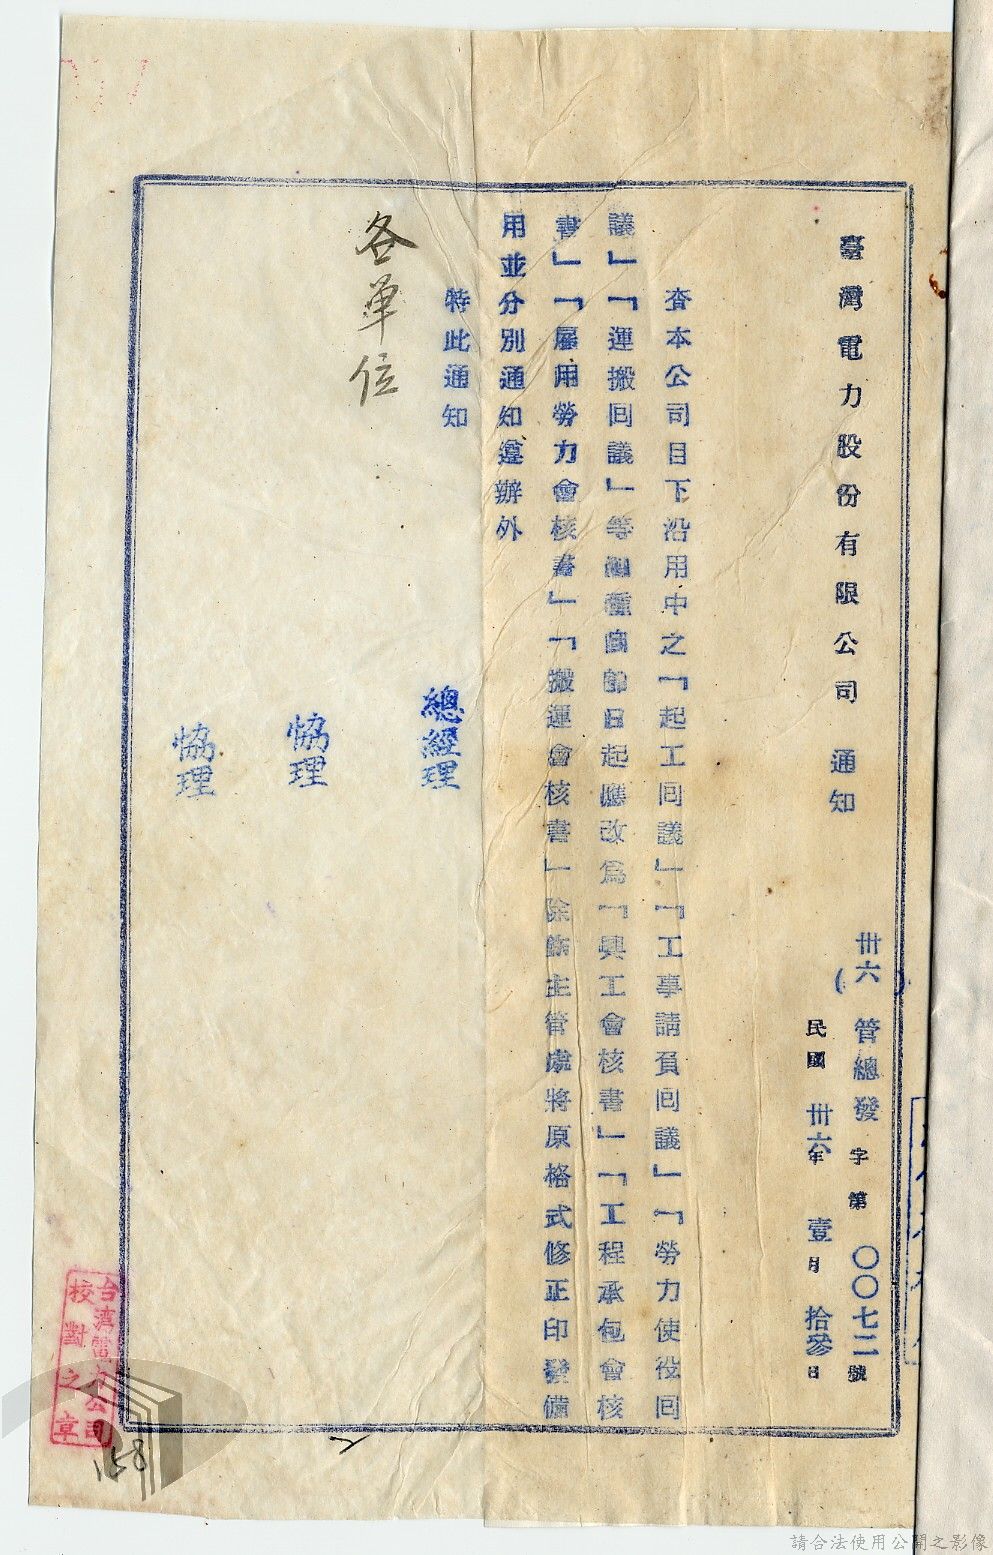 臺灣電力股份有限公司 通知
卅六(管總發字第〇〇七二號
民國卅六年壹月拾參日
查本公司目下沿用中之「起工回議」「工事請負回議」「勞力使役回
議」「運搬回議」等種自即日起應改為「興工會核書」「工程承包會核
書」「雇用勞力會核書」「搬運會核書」除飭主管處將原格式修正印發備
用並分別通知遵辦外
特此通知
各單位
總經理
協理
協理
台灣電力公司
校對之章
158
請合法使用公開之影像